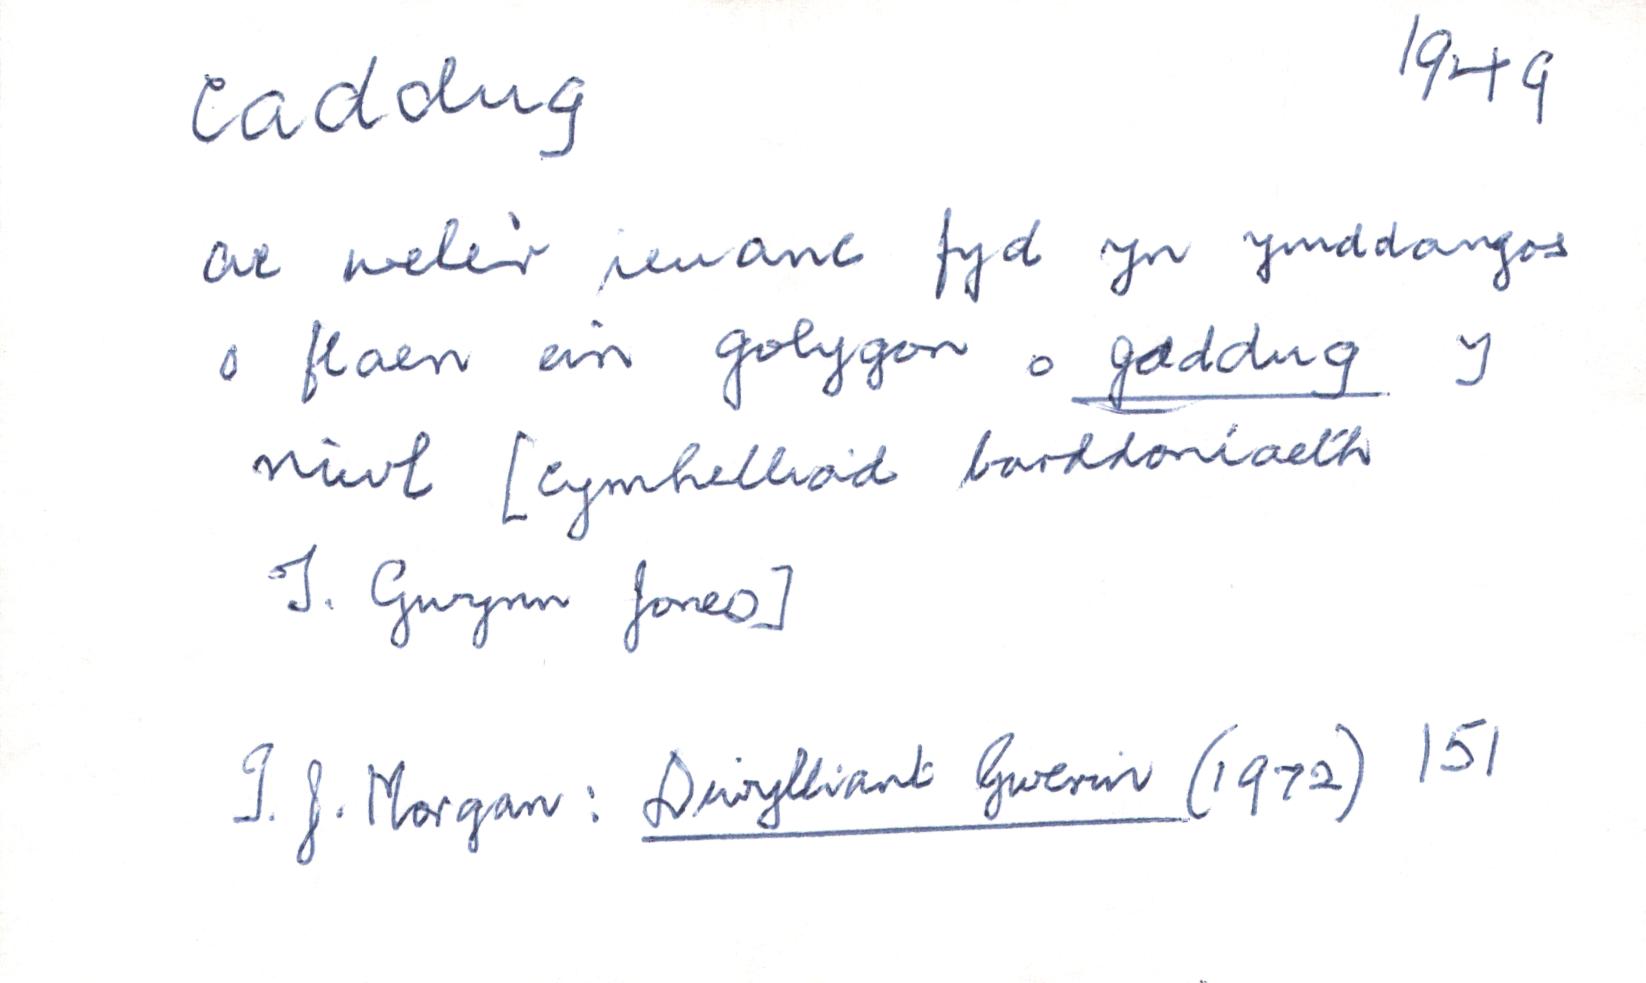 caddug 1949
ac weleir ieuanc fyd yn ymddangos
o flaen ein golygon o gaddug y
niwl [cymhelliad barddoniaeth
T. Gwynn Jones]
T. J. Morgan: Diwylliant Gwerin (1972) 151